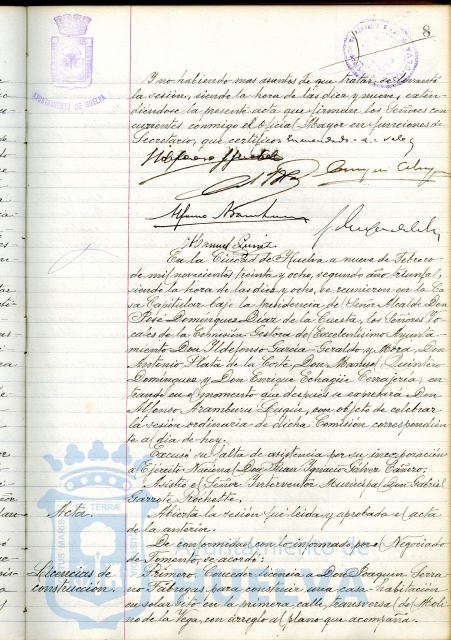 8
AYUNTAMIENTO DE HUELVA
Y no habiendo mas asuntos de que tratar, se levantó
la sesión, siendo la hora de las diez y nueve, exten-
diéndose la presente acta que firman los Señores con-
currentes conmigo el Oficial Mayor en funciones de
Secretario, que certifico.
En la Ciudad de Huelva a nueve de Febrero
de mil novecientos treinta y ocho, segundo año triunfal,
siendo la hora de las diez y ocho, se reunieron en la Ca-
sa Capitular bajo la presidencia del Señor Alcalde Don
José Dominguez Diaz de la Cuesta, los Señores Vo-
cales de la Comisión Gestora del Excelentísimo Ayunta-
miento Don Ildefonso García-Geraldo y Moza, Don
Antonio Plata de la Corte, Don Manuel Quintero
Dominguez y Don Enrique Echagüe Cinrajeria; en-
trando en el momento que después se expresará Don
Alfonso Aramburu Luque, con objeto de celebrar
la sesión ordinaria de dicha Comisión correspondien-
te al dia de hoy.
Excusó su falta de asistencia por su incorporación
al Ejército Nacional Don Juan Ignacio Gálvez Cañero.
Asiste el Señor Interventor Municipal Don Gabriel
Garrote Rochette.
Acta. Abierta la sesión fué leida y aprobada el acta
de la anterior.
De conformidad con lo informado por el Negociado
de Fomento, se acordó:
Licencias de
construcción. Primero. Conceder licencia a Don Joaquin Serra-
no Fábregas para construir una casa-habitación
en solar sito en la primera calle transversal del Moli-
no de la Vega, con arreglo al plano que acompaña.
Ayuntamiento de